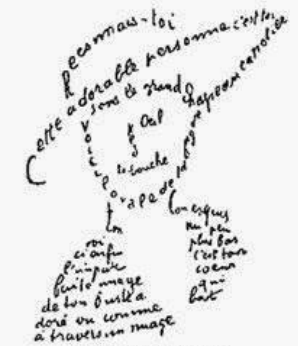 Reconnais-toi
Cette adorable personne c'est toi
Sous le grand chapeau canotier
Œil
Nez
la bouche
Voici l'ovale de ta figure
Ton
cou exquis
Voi
ci enfin
l'impar
faite image
de ton buste a
doré vu comme
à travers un nuage
un peu
plus bas
c'est ton
coeur
qui
bat